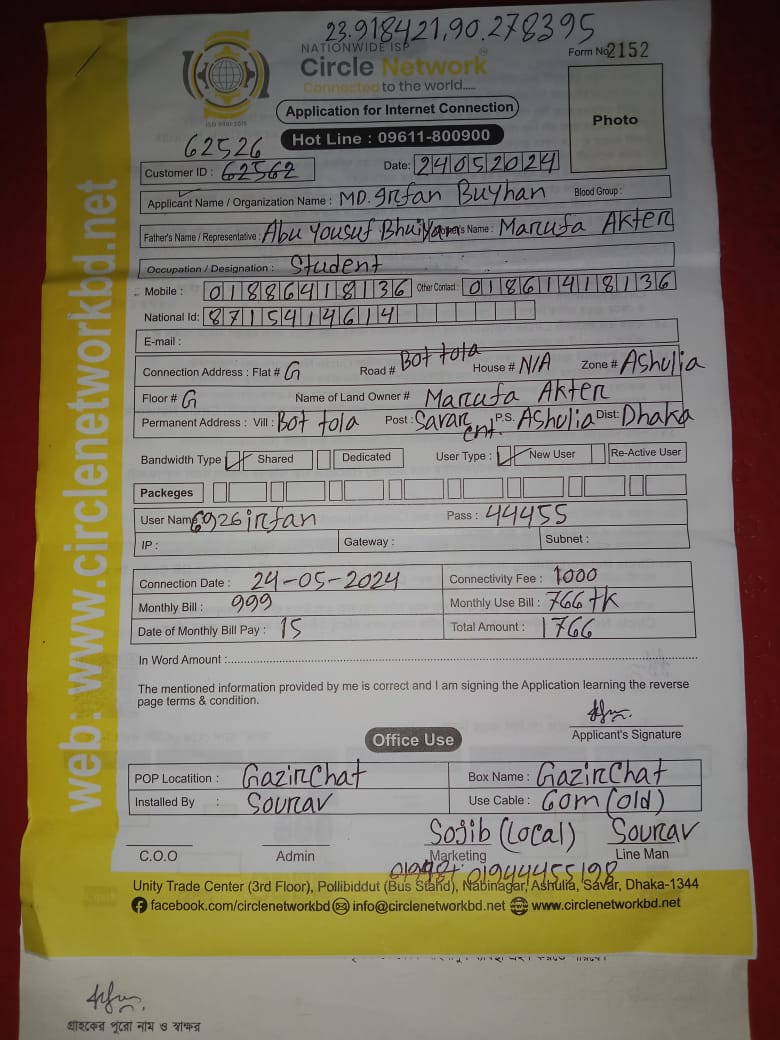 23.918421,90.278395
NATIONWIDE ISP
Circle Network
Connected to the world.....
Form No 2152
ISO 9001:2015
Application for Internet Connection
Photo
Hot Line : 09611-800900
62526
Customer ID : 62562 Date: 24052024
Applicant Name / Organization Name : MD. Irfan Buyhan Blood Group :
Father's Name / Representative : Abu Yousuf Bhuiyan Mother's Name : Marufa Akter
Occupation / Designation : Student
Mobile : 01886418136 Other Contact : 01861418136
National Id: 8715414614
E-mail :
Connection Address : Flat # G Road # Bot tola House # N/A Zone # Ashulia
Floor # G Name of Land Owner # Marufa Akter
Permanent Address : Vill : Bot tola Post : Savar cnt. P.S. Ashulia Dist: Dhaka
Bandwidth Type Shared Dedicated User Type : New User Re-Active User
Packeges
User Name 6926irfan Pass : 44455
IP : Gateway : Subnet :
Connection Date : 24-05-2024 Connectivity Fee : 1000
Monthly Bill : 999 Monthly Use Bill : 766 tk
Date of Monthly Bill Pay : 15 Total Amount : 1766
In Word Amount :
The mentioned information provided by me is correct and I am signing the Application learning the reverse
page terms & condition.
Applicant's Signature
Office Use
POP Locatition : GazirChat Box Name : GazirChat
Installed By : Sourav Use Cable : 60m (old)
Sojib (Local) Sourav
C.O.O Admin Marketing Line Man
01944455198
Unity Trade Center (3rd Floor), Pollibiddut (Bus Stand), Nabinagar, Ashulia, Savar, Dhaka-1344
facebook.com/circlenetworkbd info@circlenetworkbd.net www.circlenetworkbd.net
web: www.circlenetworkbd.net
গ্রাহকের পুরো নাম ও স্বাক্ষর